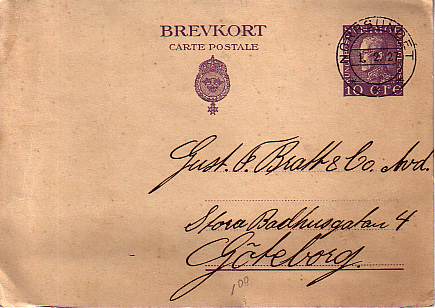 BREVKORT
CARTE POSTALE
10 ÖRE
Gust. F. Bratt & Co. Avd.
Stora Badhusgatan 4
Göteborg.
100